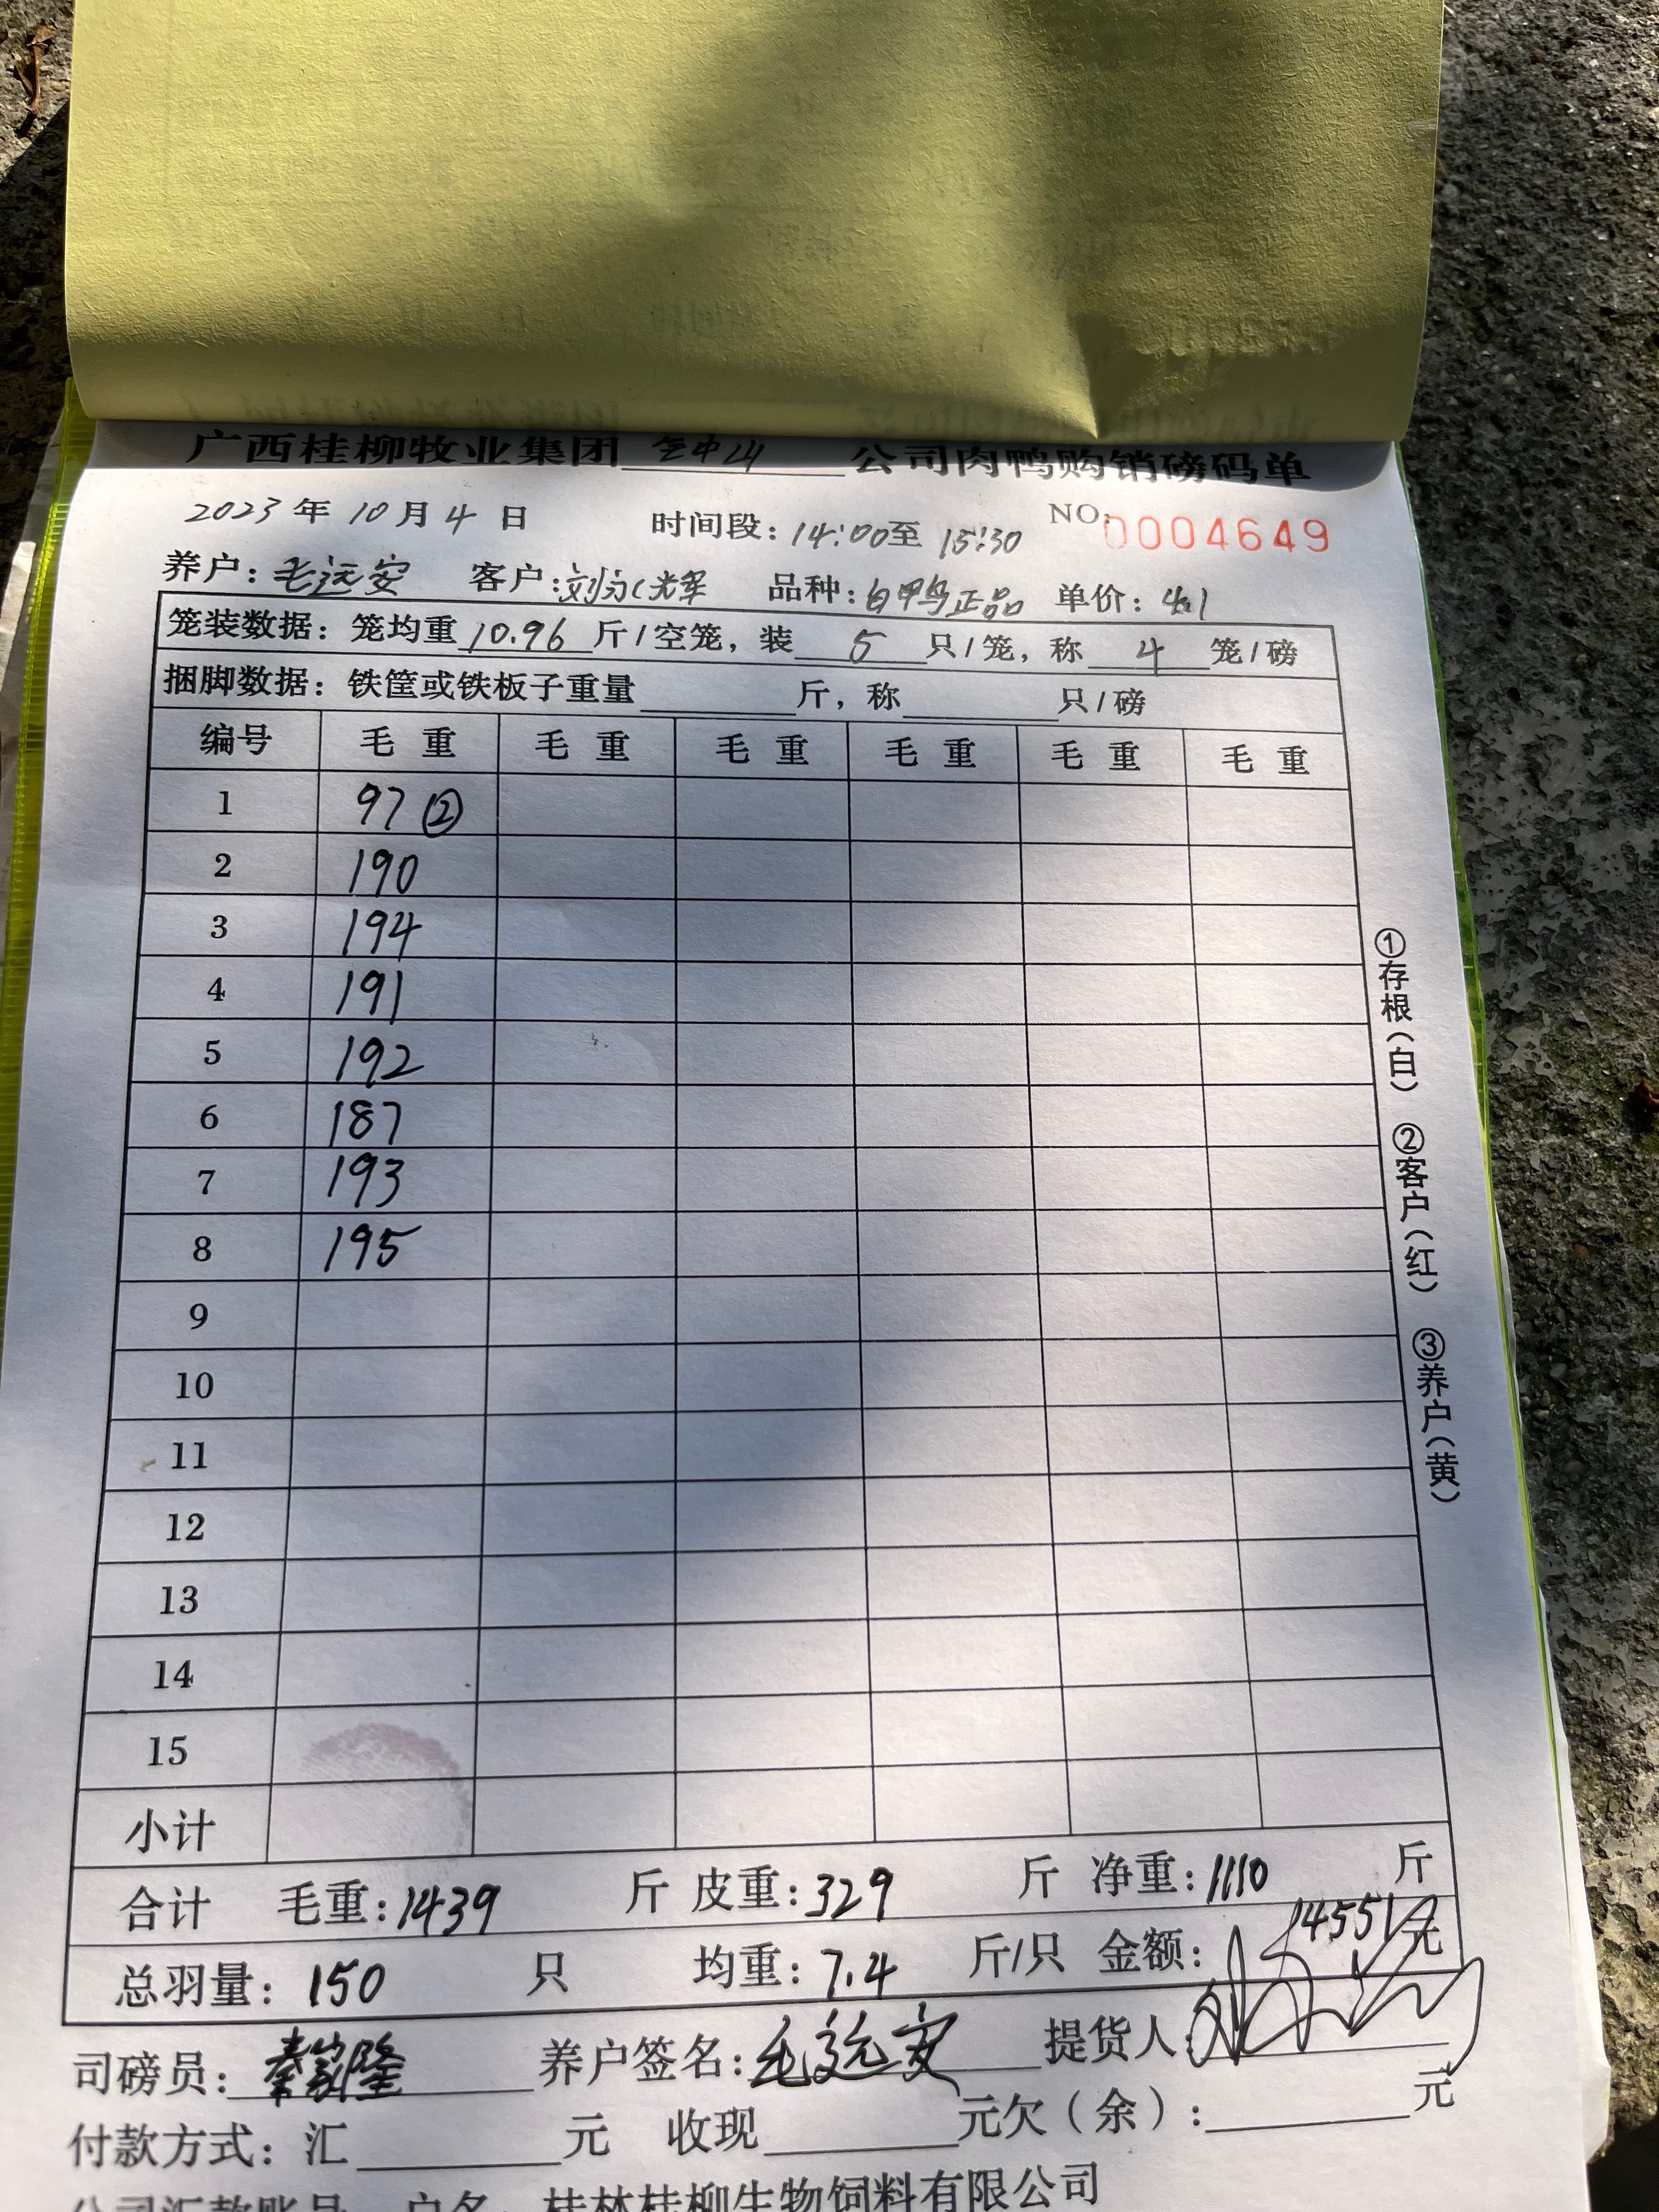 广西桂柳牧业集团 公司肉鸭购销磅码单
2023年10月4日 时间段：14:00至15:30 NO.0004649
养户：毛远安 客户：刘永辉 品种：白鸭正品 单价：
笼装数据：笼均重10.96斤/空笼，装5只/笼，称4笼/磅
捆脚数据：铁筐或铁板子重量 斤，称 只/磅
编号 毛重 毛重 毛重 毛重 毛重 毛重
1 97②
2 190
3 194
4 191
5 192
6 187
7 193
8 195
9
10
11
12
13
14
15
小计
合计 毛重：1439 斤 皮重：329 斤 净重：1110 斤
总羽量：150 只 均重：7.4 斤/只 金额：14551元
司磅员：秦家隆 养户签名：毛远安 提货人：
付款方式：汇 元 收现 元欠（余）： 元
公司汇款账号 户名 桂林桂柳生物饲料有限公司
①存根（白） ②客户（红） ③养户（黄）